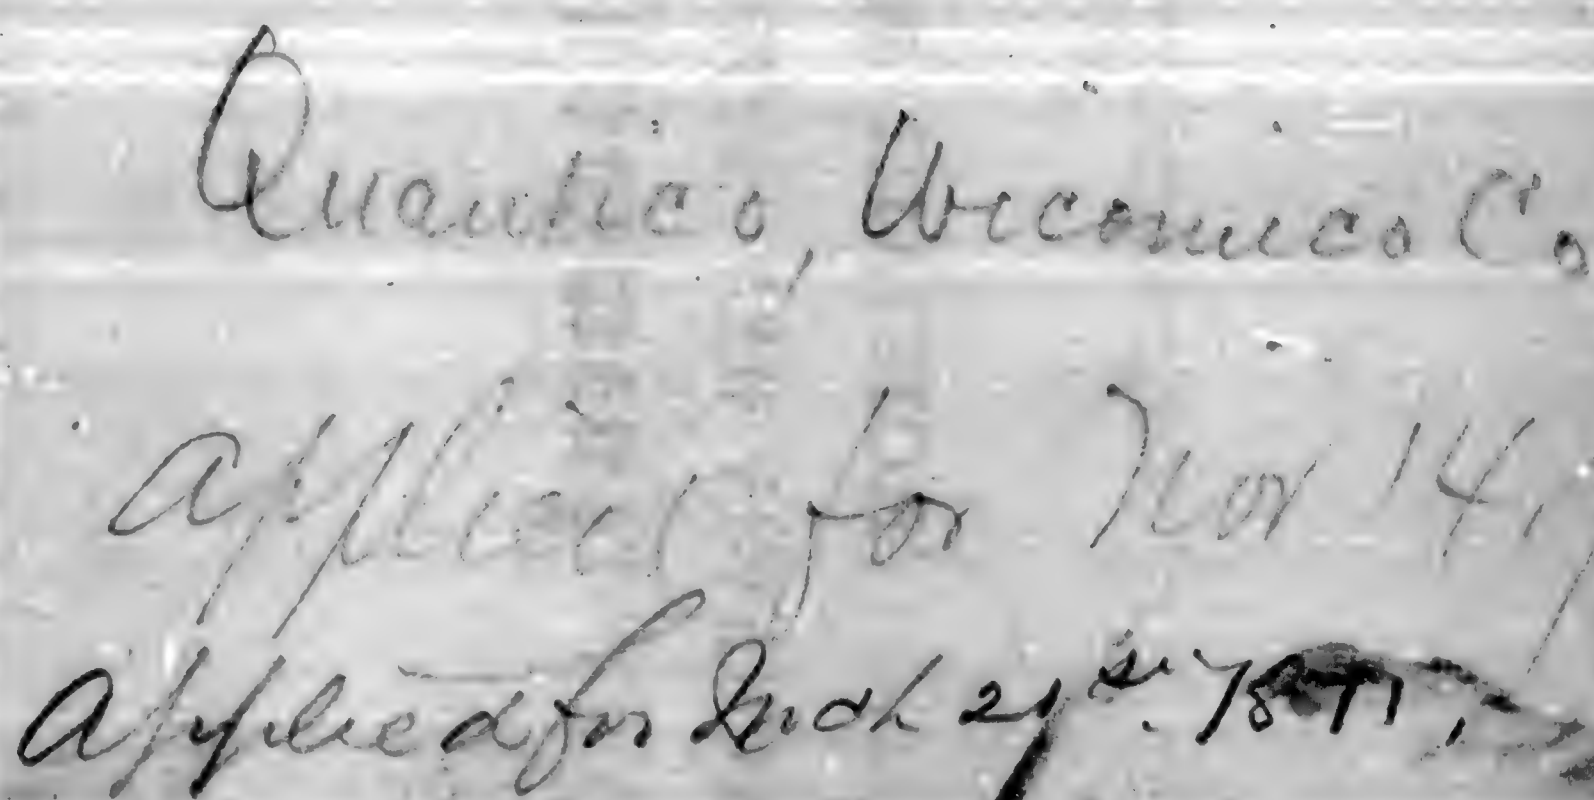 Quantico, Wicomico Co
applied for Nov 14,
applied for 21st. 1877,